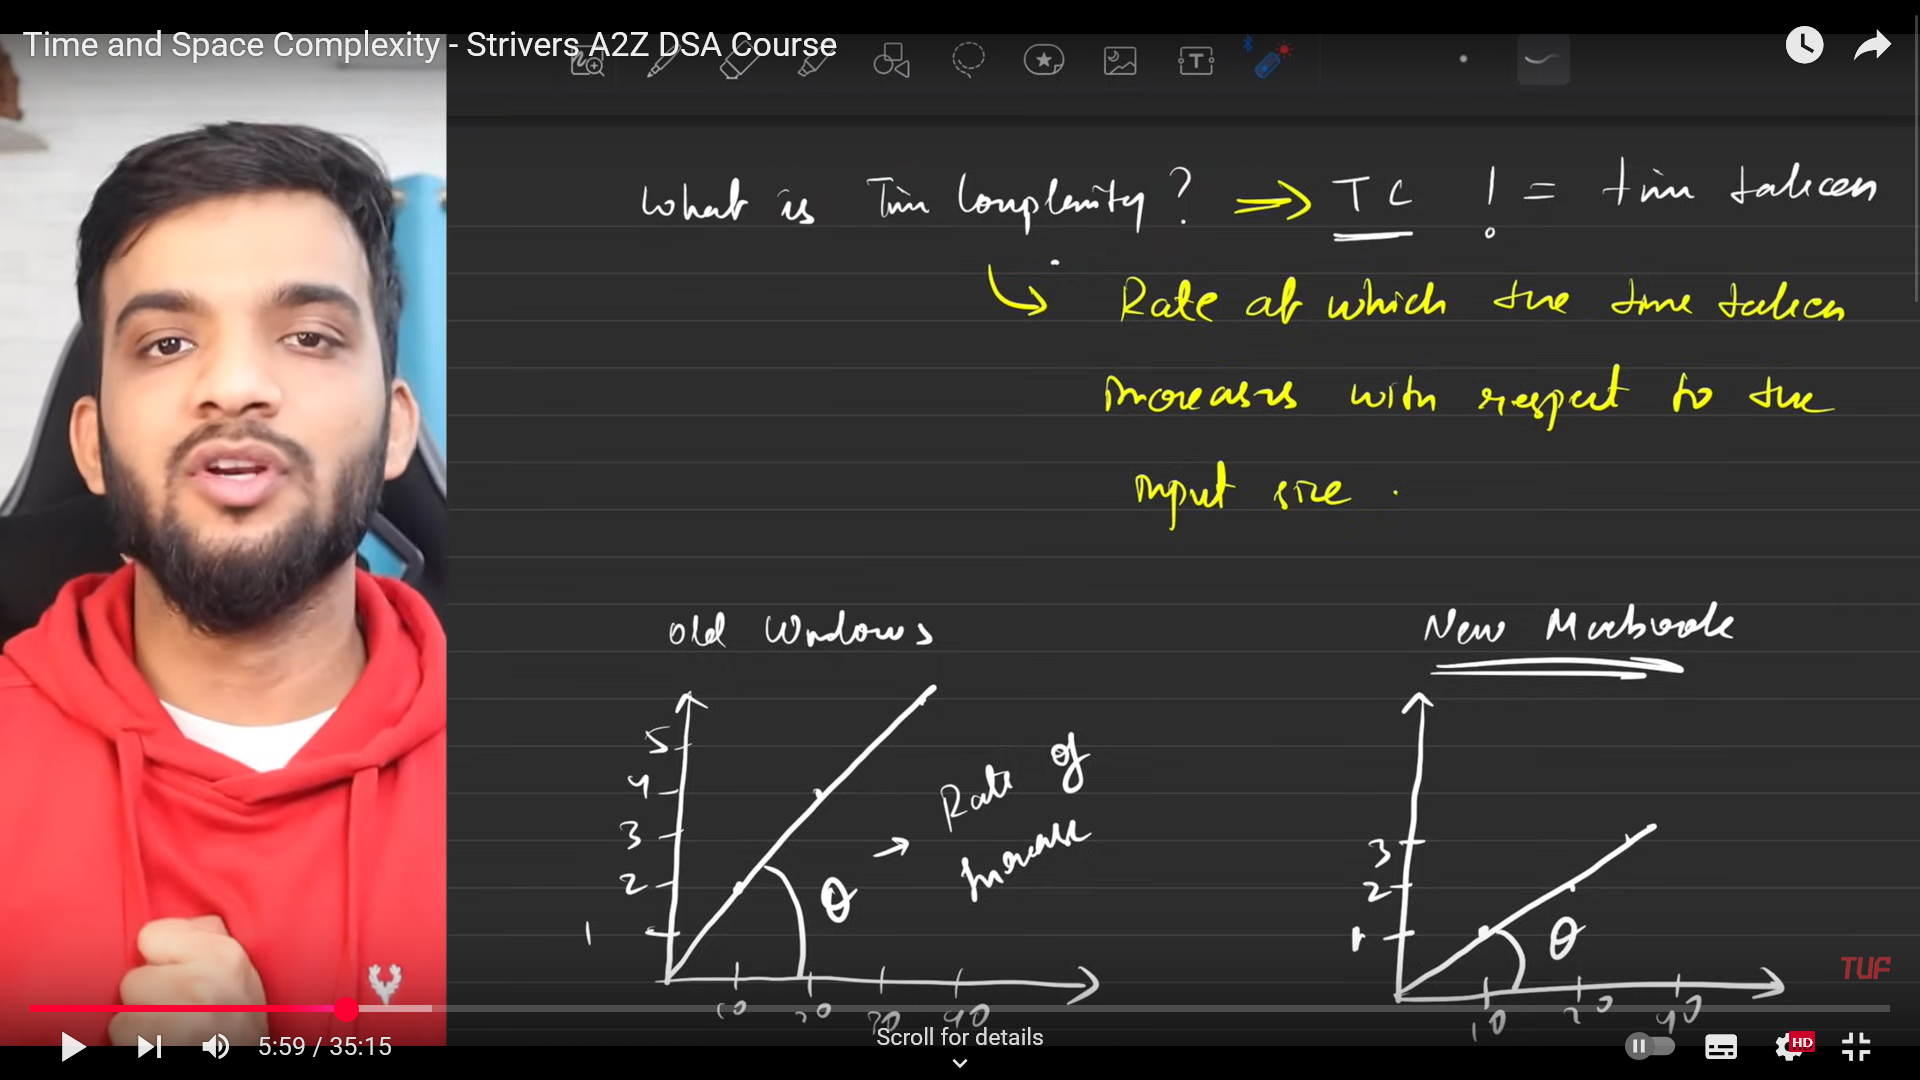 Time and Space Complexity - Strivers A2Z DSA Course
What is Time Complexity? => TC != time taken
Rate at which the time taken
increases with respect to the
input size .
Old Windows
New Macbook
5
4
3
2
1
θ → Rate of
increase
10 20 30 40
3
2
1
θ
10 20 40
TUF
5:59 / 35:15
Scroll for details
HD